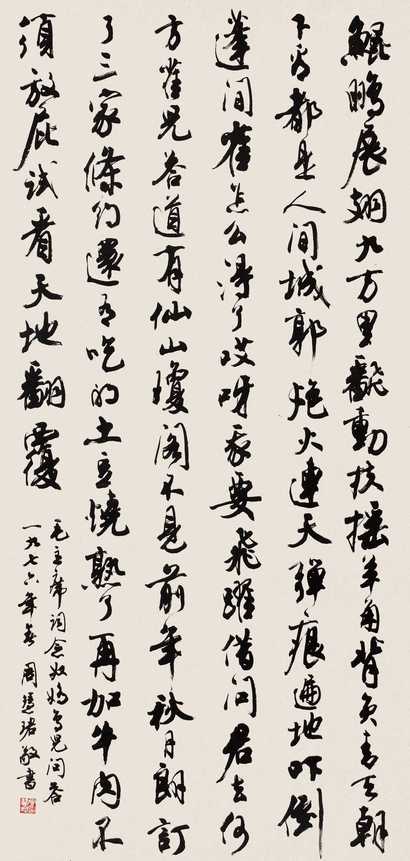 鯤鵬展翅九万里翻動扶搖羊角背負青天朝
下看都是人间城郭炮火連天彈痕遍地吓倒
蓬间雀怎么得了哎呀我要飛躍借问君去何
方雀兒答道有仙山瓊阁不見前年秋月朗訂
了三家條约還有吃的土豆燒熟了再加牛肉不
須放屁試看天地翻覆
毛主席词念奴嬌鸟兒问答
一九七六年春 周慧珺敬書